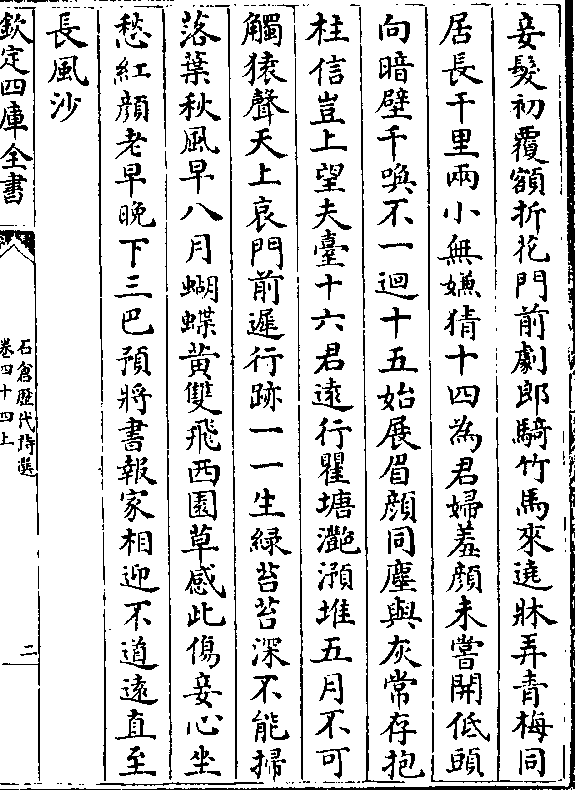 妾髮初覆額折花門前劇郎騎竹馬來遶牀弄青梅同
居長千里兩小無嫌猜十四為君婦羞顔未嘗開低頭
向暗壁千喚不一迴十五始展眉願同塵與灰常存抱
柱信豈上望夫臺十六君遠行瞿塘灔澦堆五月不可
觸猿聲天上哀門前遲行跡一一生緑苔苔深不能掃
落葉秋風早八月蝴蝶黄雙飛西園草感此傷妾心坐
愁紅顔老早晚下三巴預將書報家相迎不道遠直至
長風沙
欽定四庫全書
石倉歷代詩選
卷四十四上
二